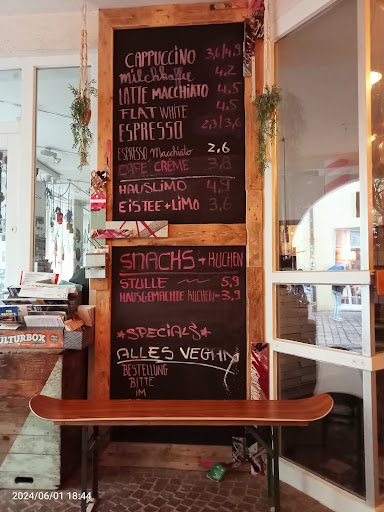 CAPPUCCINO 3,6/4,9
Milchkaffee 4,2
LATTE MACCHIATO 4,5
FLAT WHITE 4,5
ESPRESSO 2,3/3,6
ESPRESSO Macchiato 2,6
CAFÉ CRÈME 3,8
HAUSLIMO 4,9
EISTEE + LIMO 3,6
SNACKS → KUCHEN
STULLE 5,9
HAUSGEMACHTE KUCHEN 3,9
★SPECIALS★
ALLES VEGAN
BESTELLUNG
BITTE
IM
ULTURBOX
2024/06/01 18:44